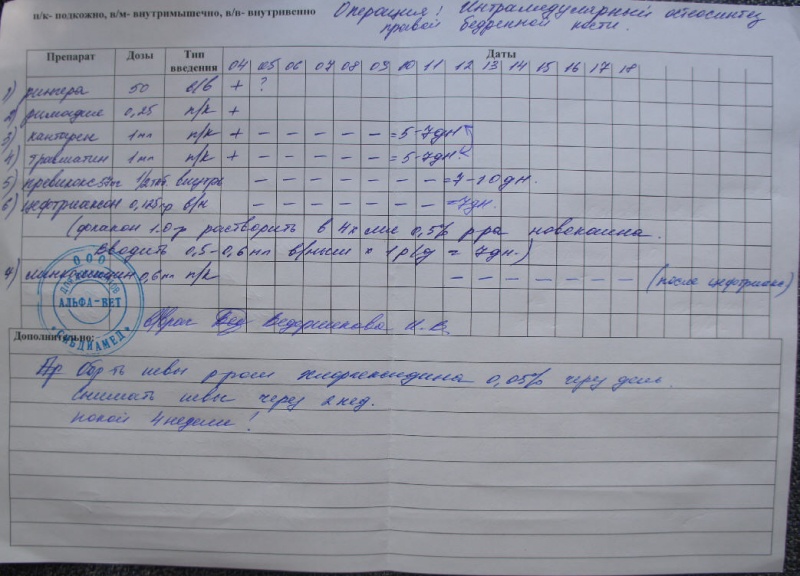 п/к- подкожно, в/м- внутримышечно, в/в- внутривенно
Операция: Интрамедулярный остеосинтез
правой бедренной кости.
Препарат Дозы Тип введения Даты
04 05 06 07 08 09 10 11 12 13 14 15 16 17 18
1) рингера 50 в/в + ?
2) римадил 0,25 п/к +
3) кантарен 1мл п/к + – – – – – = 5-7дн
4) травматин 1мл п/к + – – – – – = 5-7дн
5) превикокс 1/2таб. внутрь – – – – – – – = 7-10дн.
6) цефтриаксон 0,125гр в/м – – – – – – – =7дн.
(флакон 1.0гр растворить в 4х мл 0,5% р-ра новокаина.
Вводить 0,5-0,6мл в/мыш × 1р/д = 7дн.)
7) линкомицин 0,6мл п/к – – – – – – – (после цефтриакс)
ООО
АЛЬФА-ВЕТ
Врач Вед
Дополнительно:
Обр-ть швы р-ром хлоргексидина 0,05% через день.
Снимать швы через 2 нед.
покой 4 недели!